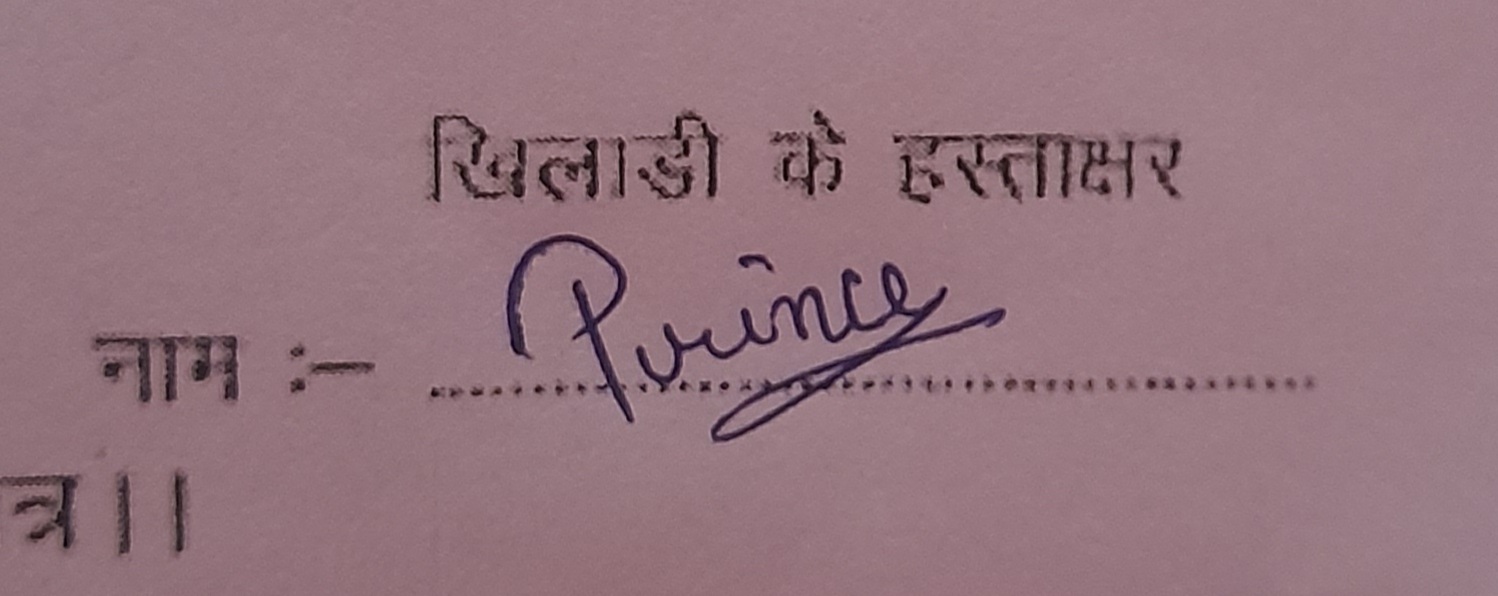 खिलाडी के हस्ताक्षर
नाम :- Prince
त्र ।।